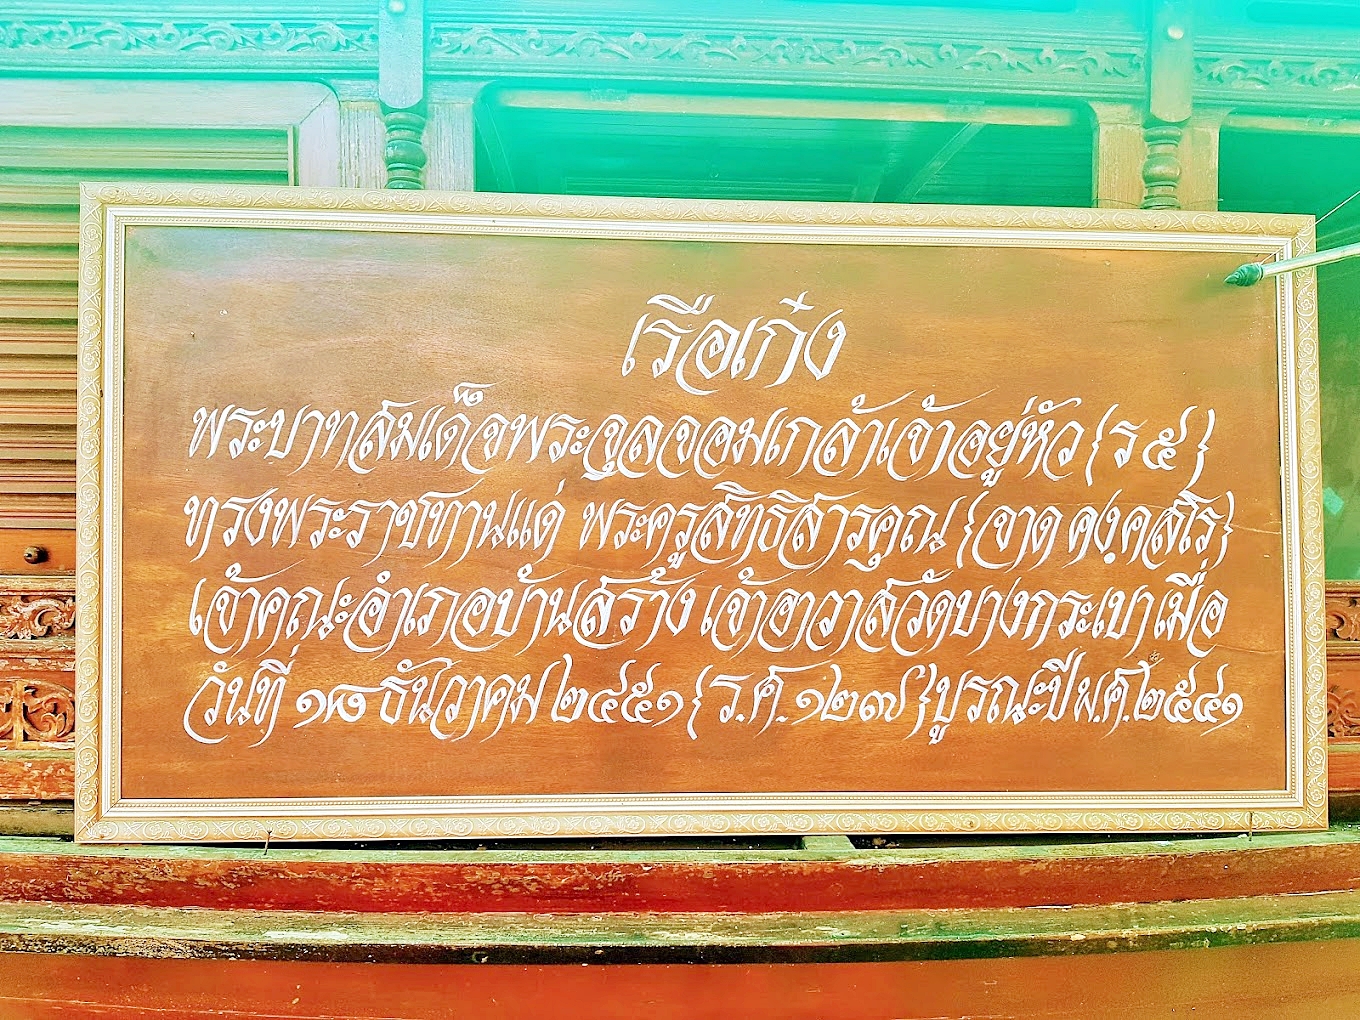 เรือเก๋ง
พระบาทสมเด็จพระจุลจอมเกล้าเจ้าอยู่หัว {ร ๕}
ทรงพระราชทานแด่ พระครูสิทธิสารคุณ {จาด คงฺคสโร}
เจ้าคณะอำเภอบ้านสร้าง เจ้าอาวาสวัดบางกระเบา เมื่อ
วันที่ ๑๘ ธันวาคม ๒๔๕๑ {ร.ศ. ๑๒๗} บูรณะปี พ.ศ. ๒๕๔๑